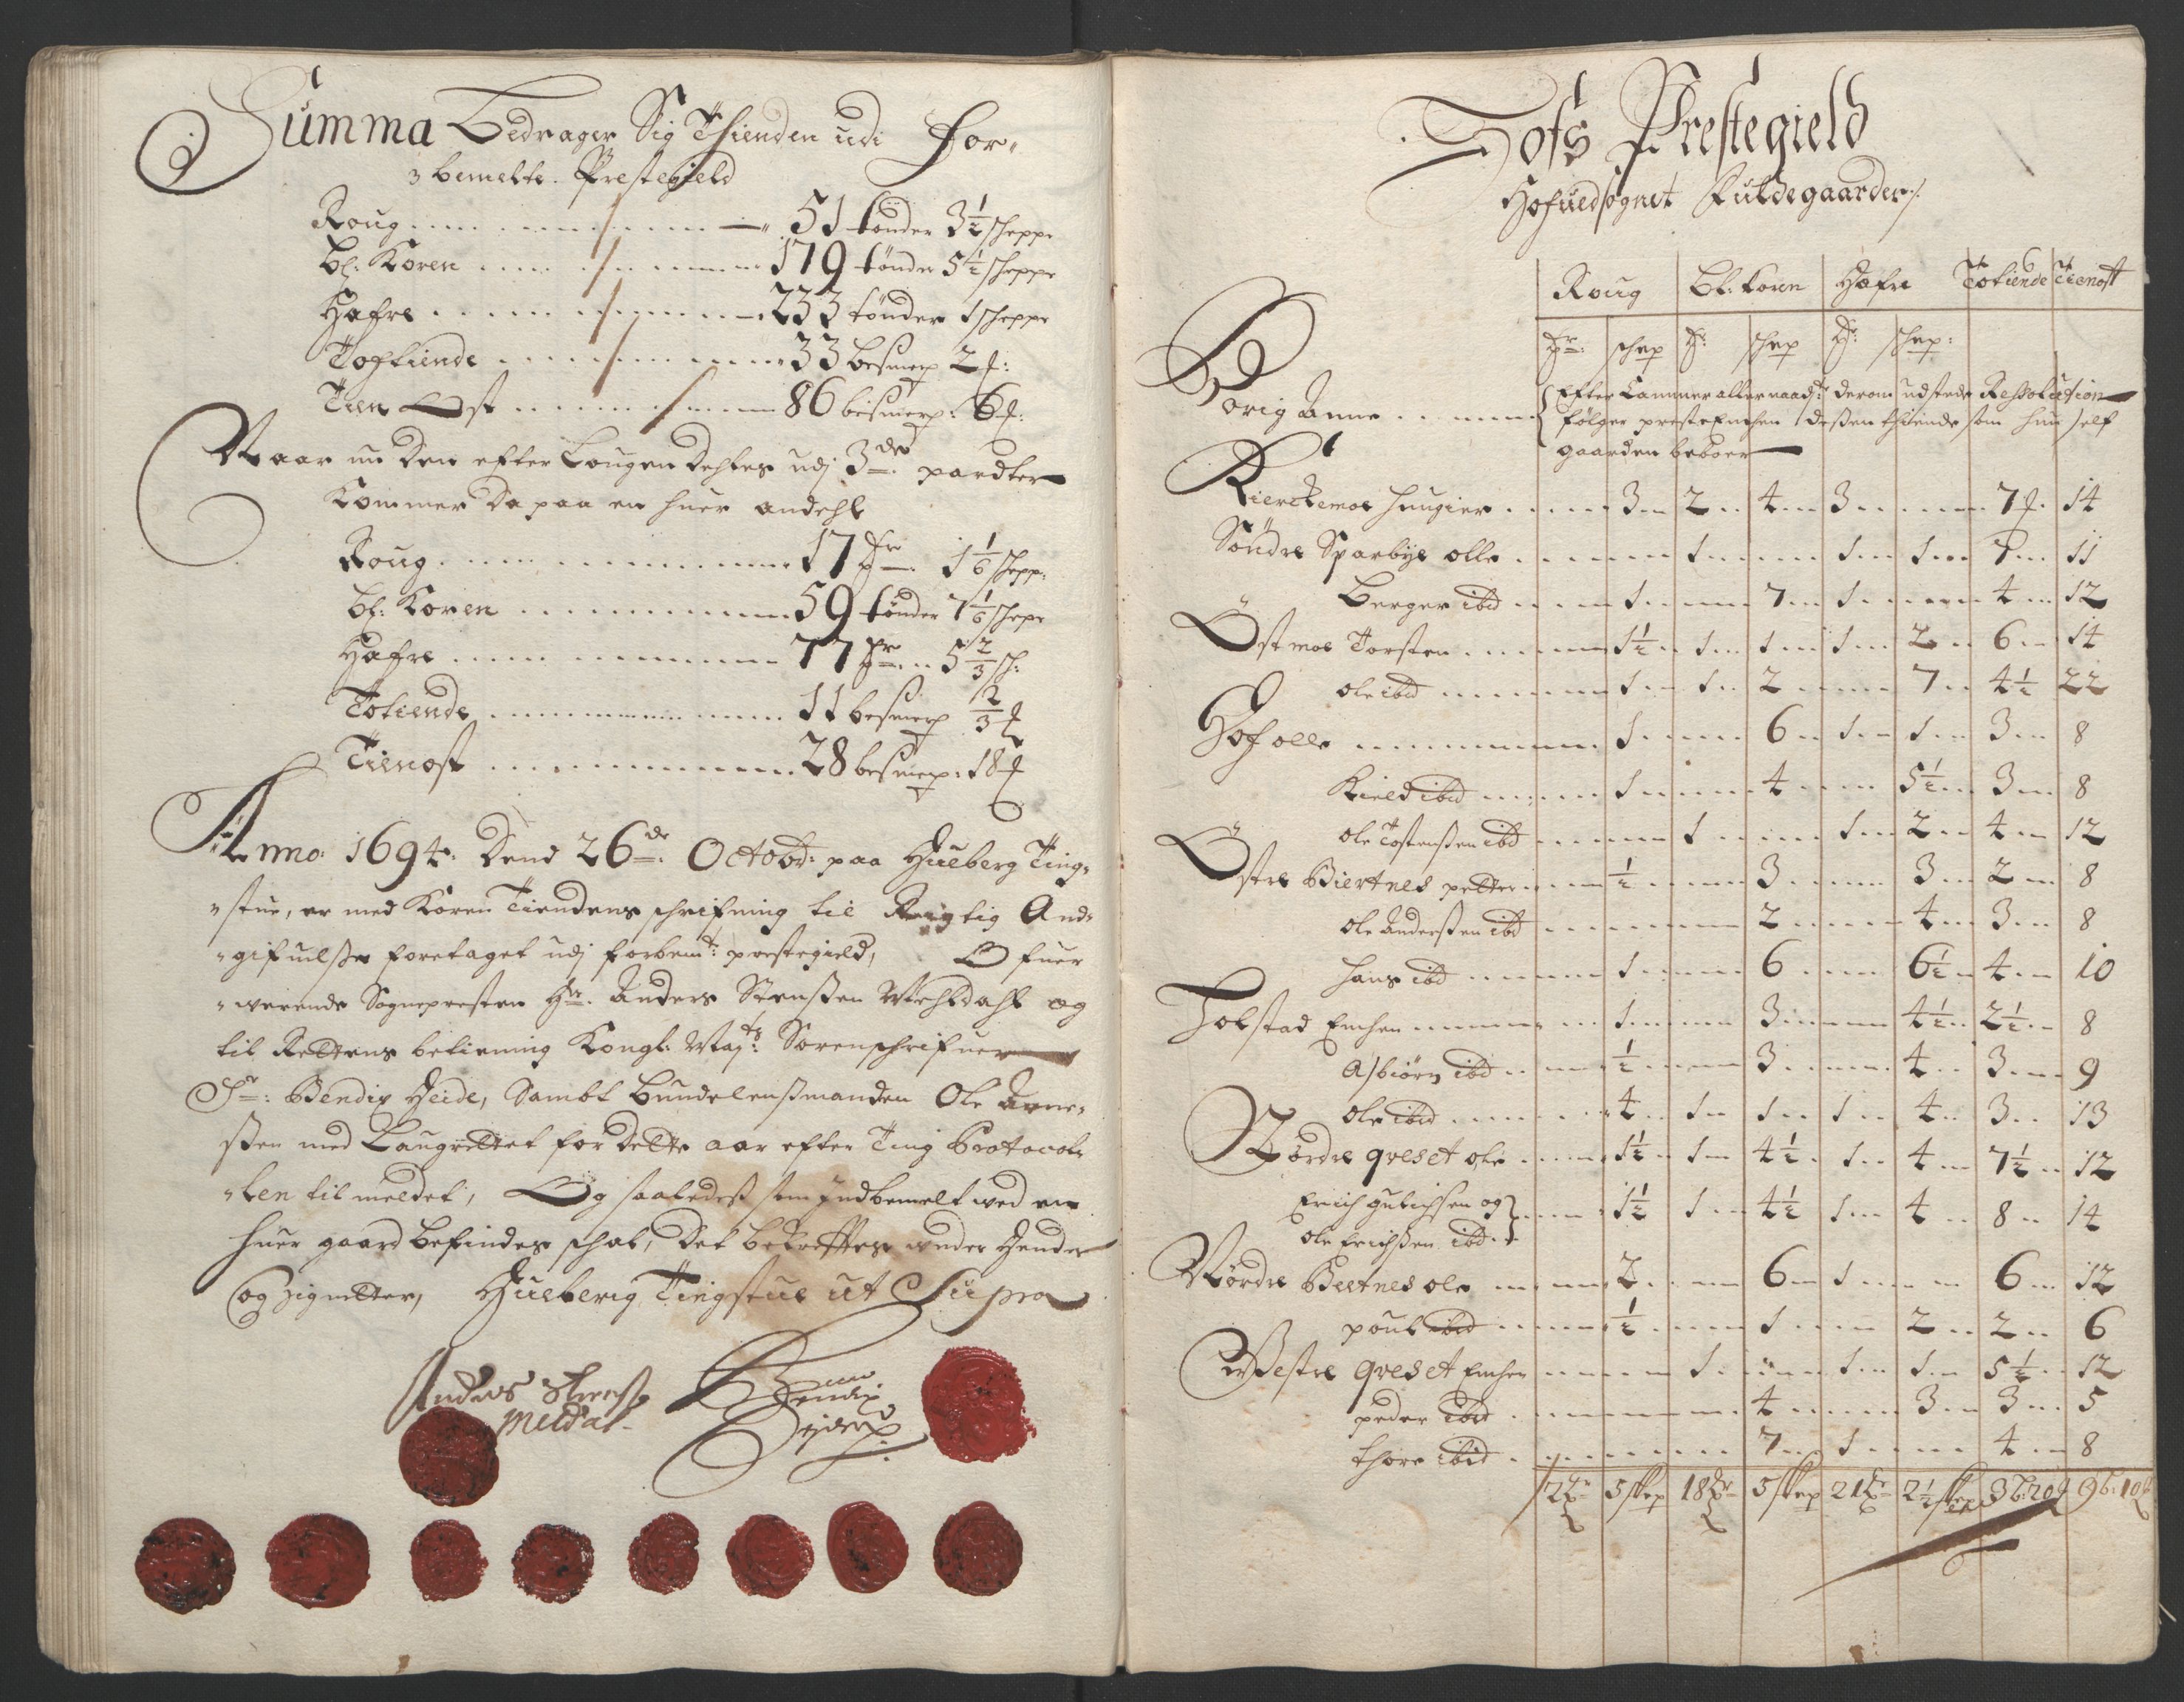 Summa Bedrager Sig Thienden udi For-
bemelte Prestegield
Roug . . . . 51 tønder 3½ scheppe
Bl: Koren . . . . 179 tønder 5½ scheppe
Hafre . . . . 233 tønder 1 scheppe
Togtiende . . . . 33 besmerp 2 ℔:
Tien Ost . . . . 86 bismerp: 6 ℔:
Naar nu Den efter Lougen Dehles udj 3de pardter
Kommer Da paa en huer andehl
Roug . . . . 17 Tr 1 1/6 schepp:
bl: Koren . . . . 59 tønder 7 1/6 schepe
Hafre . . . . 77 Tr 5 2/3 sch:
Totiende . . . . 11 besmerp 2/3 ℔
Tienost . . . . 28 besmerp: 18 ℔
Anno 1694: Dend 26de: Octobr: paa Hueberg Ting-
stue, er med Koren Tiendens schrifning til Rigtig And-
gifuelsse foretaget udj forbemt: prestegield, Ofuer
werende Sognepresten Hr. Anders Stensßen Mehldahl og
til Rettens betiening Kongl: Mayts: Sorenschrifuer
Sr: Bendix Heide, Sambt Bundelensmanden Ole Arne-
sßen med Laugrettet for Dette aar efter Ting Protocol-
len til meldet, Og saaledeß som Indbemelt wed en
huer gaard befindes schal, Det bekreftes under Hender
og zignetter, Hueberig Tingstue ut Supra
Anders Stensß
Meldal
Bendix
Heyde
Hofs Prestegield
Hofuedsognet Fuldegaarder
Roug | Bl: Koren | Hafre | Totiende | Tienost
Tr: | schep | Tr: | schep | Tr: | schep:
Borig Anne . . . . Efter Cammer collernaadt: derom udstede Ressolution
følger prestEnchen Deßen thiende som hun self
gaarden beboer
Kierckemoe Huugier . . . . 3 | 2 | 4 | 3 | | 7 ℔ | 14
Søndre Sparbye olle . . . . 1 | | 1 | 1 | 7 | 11
Berger ibd . . . . 1 | | 7 | 1 | | 4 | 12
Østmoe Torsten . . . . 1½ | 1 | 1 | 1 | 2 | 6 | 14
ole ibd . . . . 1 | 1 | 2 | | 7 | 4½ | 22
Hof olle . . . . 1 | | 6 | 1 | 1 | 3 | 8
Kield ibd . . . . 1 | | 4 | | 5½ | 3 | 8
ole Tostensßen ibd . . . . | 1 | | 1 | 2 | 4 | 12
Østre Biertnes petter . . . . ½ | | 3 | | 3 | 2 | 8
ole Andersßen ibd . . . . | | 2 | | 4 | 3 | 8
Hans ibd . . . . 1 | | 6 | | 6½ | 4 | 10
Tolstad Enchen . . . . 1 | | 3 | | 4½ | 2½ | 8
Asbiørn ibd . . . . ½ | | 3 | | 4 | 3 | 9
ole ibd . . . . 4 | 1 | 1 | 1 | 4 | 3 | 13
Nørdre qveset ole . . . . 1½ | 1 | 4½ | 1 | 4 | 7½ | 12
Erich gulichsen og
ole Erichsßen ibd . . . . 1½ | 1 | 4½ | 1 | 4 | 8 | 14
Nørdre Biertnes ole . . . . 2 | | 6 | 1 | | 6 | 12
poul ibid . . . . ½ | | 1 | | 2 | 2 | 6
Westre qveset Enchen . . . . | 1 | | 1 | 1 | 5½ | 12
peder ibid . . . . | | 4 | | 3 | 3 | 5
thore ibid . . . . | | 7 | 1 | | 4 | 8
2 Tr | 5 skep | 18 Tr | 5 skep | 21 Tr | 2½ skep | 3 b: 20 ℔ | 9 b: 10 ℔